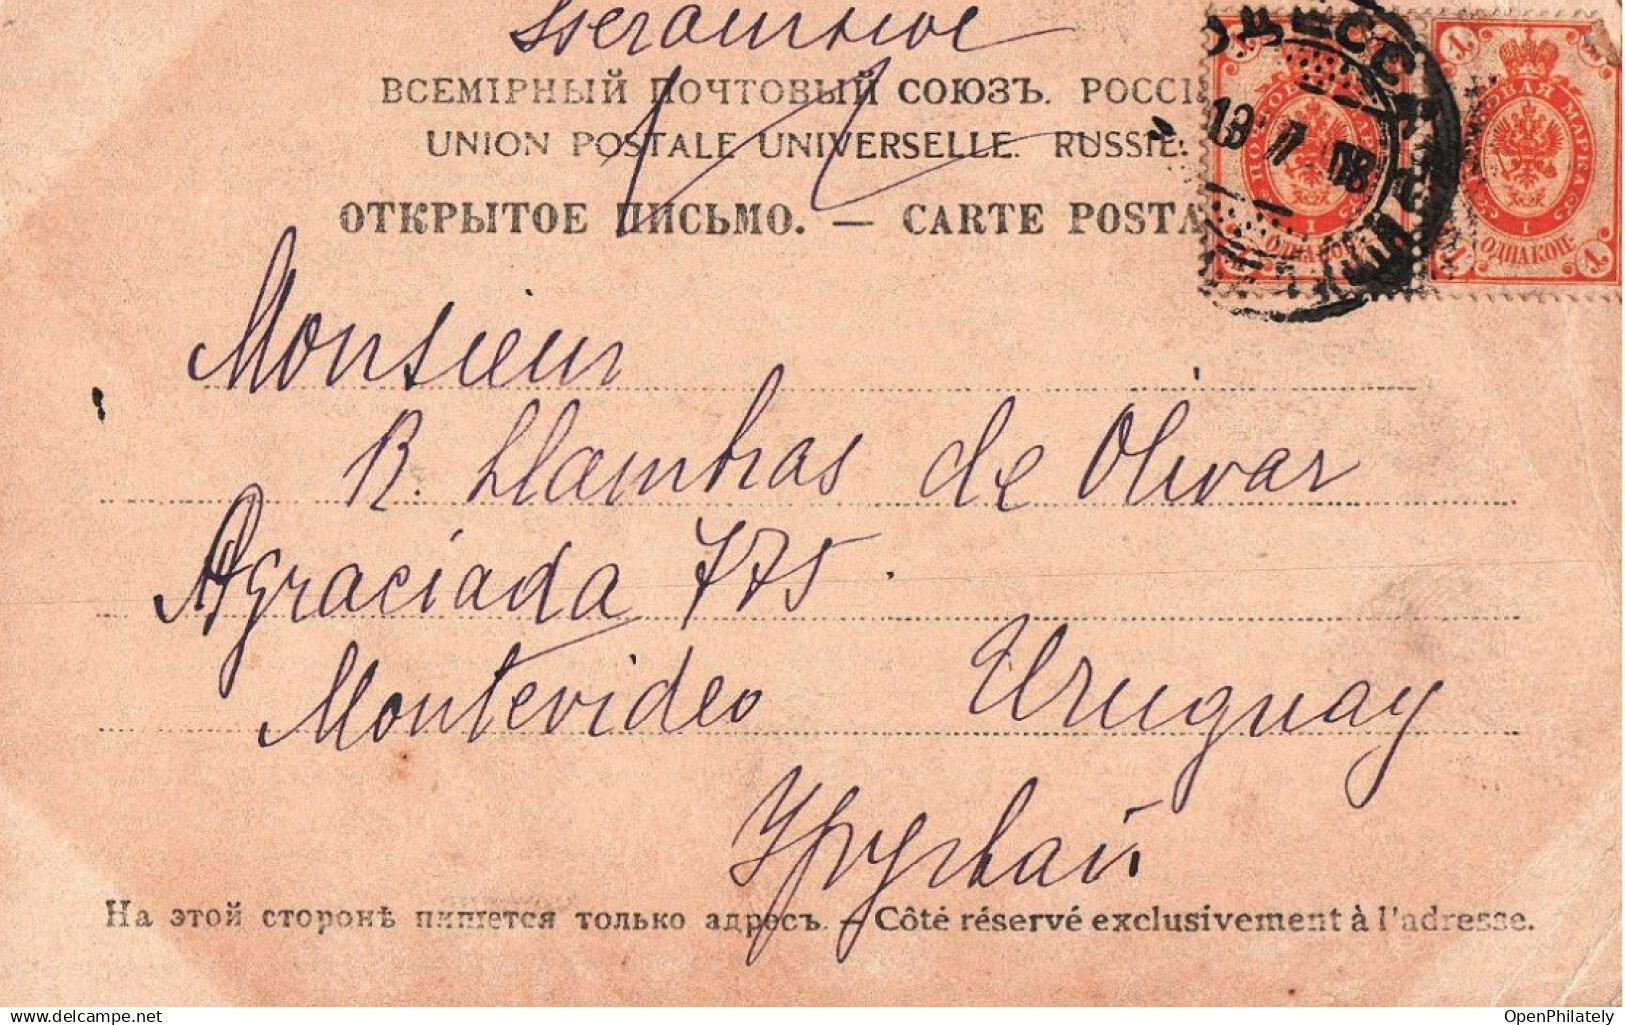 ВСЕМІРНЫЙ ПОЧТОВЫЙ СОЮЗЪ. РОССІ
UNION POSTALE UNIVERSELLE. RUSSIE.
ОТКРЫТОЕ ПИСЬМО. — CARTE POSTA
ОДЕССА
19 7 08
ПОЧТОВАЯ МАРКА
1
ОДНА КОП.
Monsieur
R. Llambias de Olivar
Agraciada 775
Montevideo Uruguay
Уругвай
На этой сторонѣ пишется только адресъ. — Côté réservé exclusivement à l'adresse.
delcampe.net
OpenPhilately